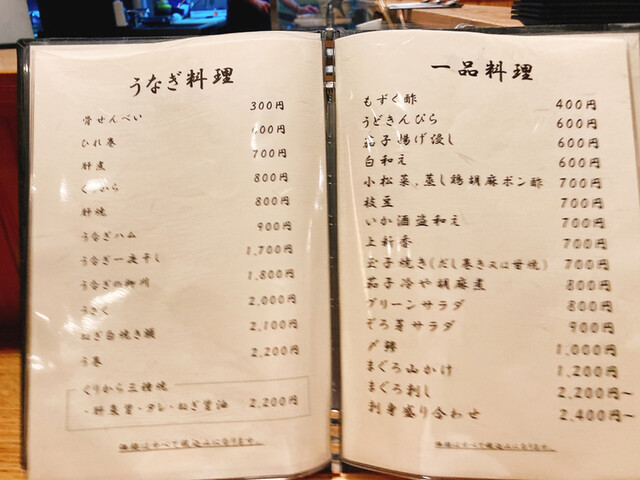 うなぎ料理
骨せんべい 300円
ひれ巻 600円
肝煮 700円
くりから 800円
肝焼 800円
うなぎハム 900円
うなぎ一夜干し 1,700円
うなぎの柳川 1,800円
うざく 2,000円
ねぎ白焼き鍋 2,100円
う巻 2,200円
くりから三種焼
・肝東醤・タレ・ねぎ醤油 2,200円
価格はすべて税込みになります。
一品料理
もずく酢 400円
うどきんぴら 600円
茄子揚げ浸し 600円
白和え 600円
小松菜、蒸し鶏胡麻ポン酢 700円
枝豆 700円
いか酒盗和え 700円
上新香 700円
玉子焼き(だし巻き又は甘焼) 700円
茄子冷や胡麻煮 800円
グリーンサラダ 800円
ぞろ菜サラダ 900円
〆鯖 1,000円
まぐろ山かけ 1,200円
まぐろ刺し 2,200円~
刺身盛り合わせ 2,400円~
価格はすべて税込みになります。